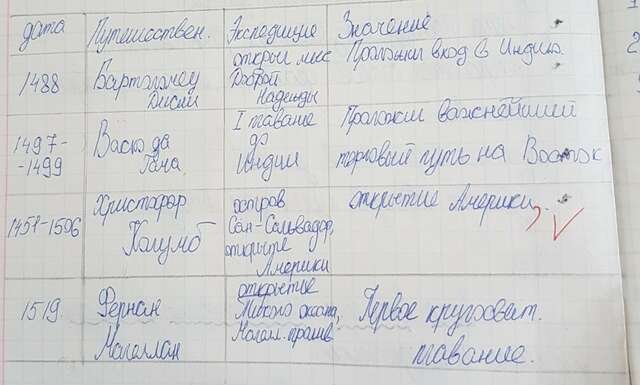 дата Путешествен. Экспедиция Значение
1488 Бартоломеу Диаш открыл мыс Доброй Надежды Проложил вход в Индию.
1497-1499 Васко да Гама I плавание до Индии Проложил важнейший торговый путь на Восток
1451-1506 Христофор Колумб остров Сан-Сальвадор, открытие Америки открытие Америки.
1519. Фернан Магеллан открытие Тихого океана, Магел. пролив Первое кругосвет. плавание.